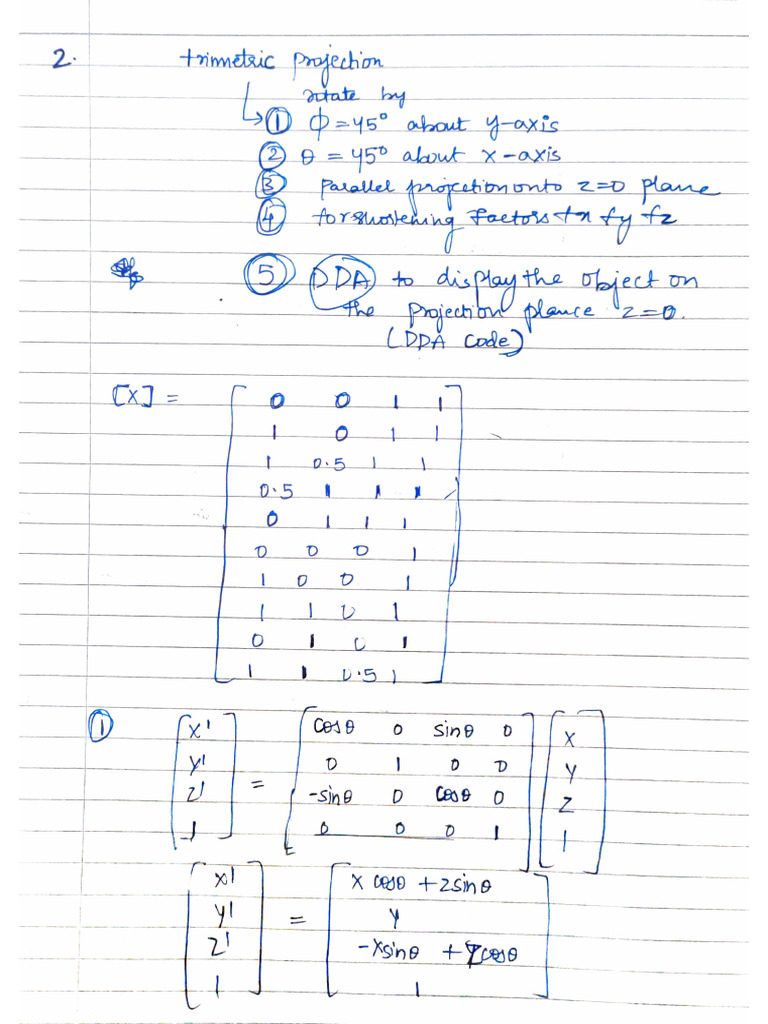 2. trimetric projection
rotate by
① ϕ = 45° about y-axis
② θ = 45° about x-axis
③ Parallel projcetion onto z=0 plane
④ forshostening factors fx fy fz
⑤ DDA to display the object on
the projection plance z=0.
(DDA code)
[X] =
0 0 1 1
1 0 1 1
1 0.5 1 1
0.5 1 1 1
0 1 1 1
0 0 0 1
1 0 0 1
1 1 0 1
0 1 0 1
1 1 0.5 1
①
x' cosθ 0 sinθ 0 x
y' 0 1 0 0 y
z' = -sinθ 0 cosθ 0 z
1 0 0 0 1 1
x' x cosθ + z sinθ
y' = y
z' -x sinθ + z cosθ
1 1